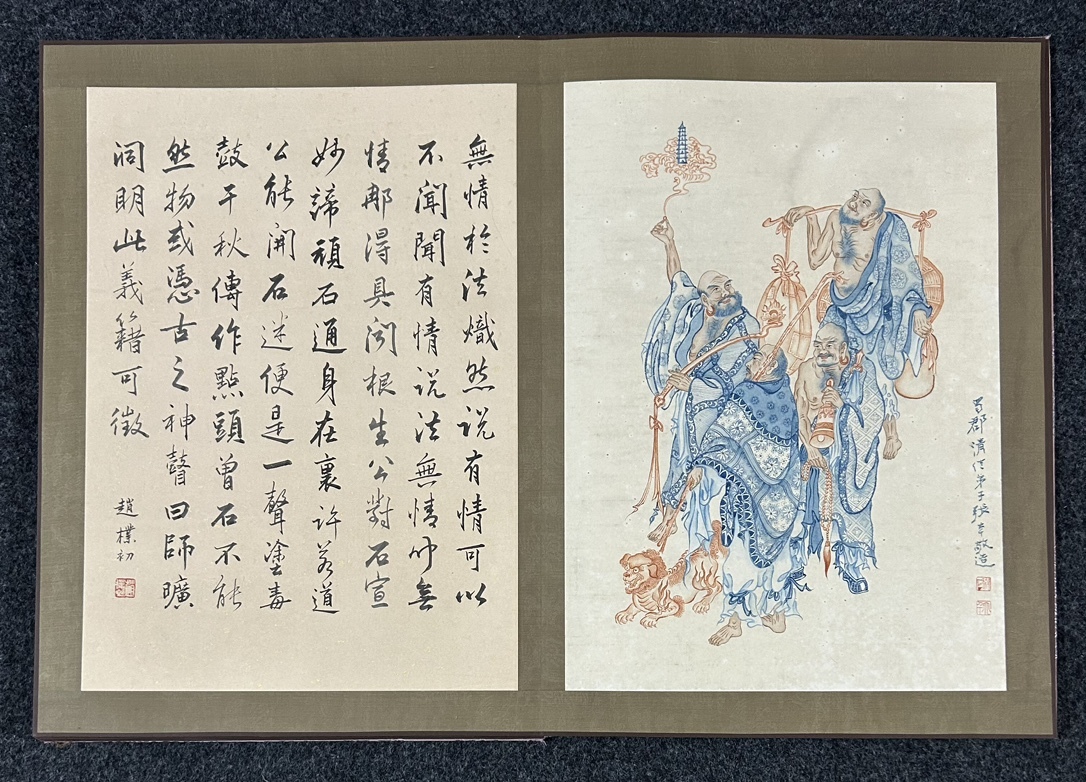 蜀郡清信弟子張爰敬造
無情於法熾然說有情可以
不聞聞有情說法無情無
情那得具闻根生公對石宣
妙諦頑石通身在裏許若道
公能開石迷便是一聲塗毒
鼓千秋傳作點頭曾石不能
然物或憑古之神瞽曰師曠
洞明此義籍可徵
趙樸初